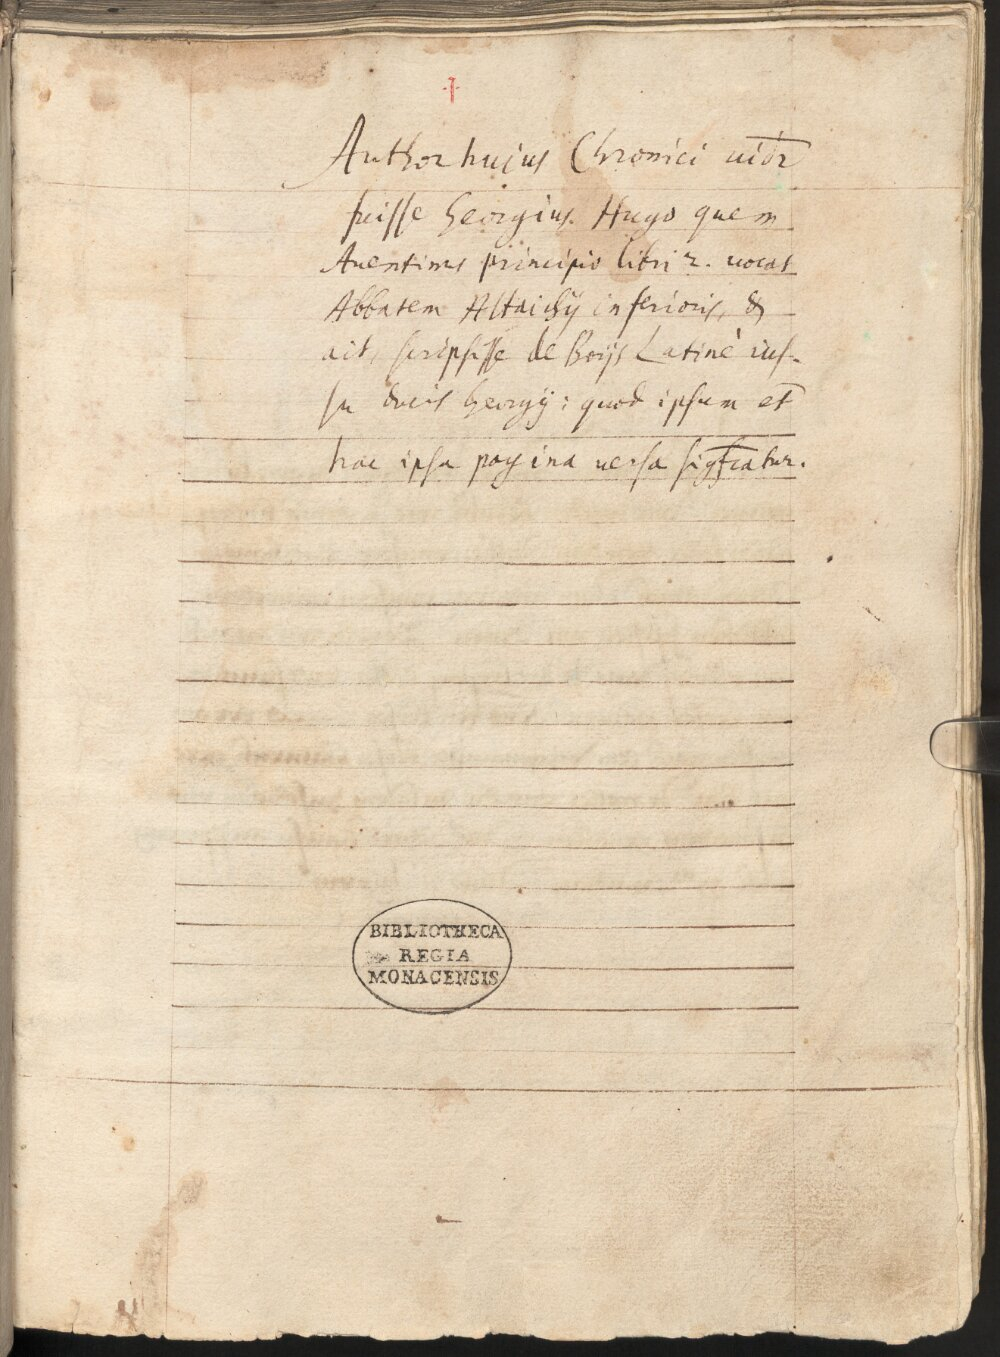 1
Author hujus Chronici uidr̄
fuisse Georgius Hugo quem
Auentinus principio libri 2. uocat
Abbatem Altaichij inferioris, &
ait, scripsisse de Boijs Latinè ius-
su ducis Georgij: quod ipsum et
hac ipsa pagina uersa sigfcatur.
BIBLIOTHECA
REGIA
MONACENSIS